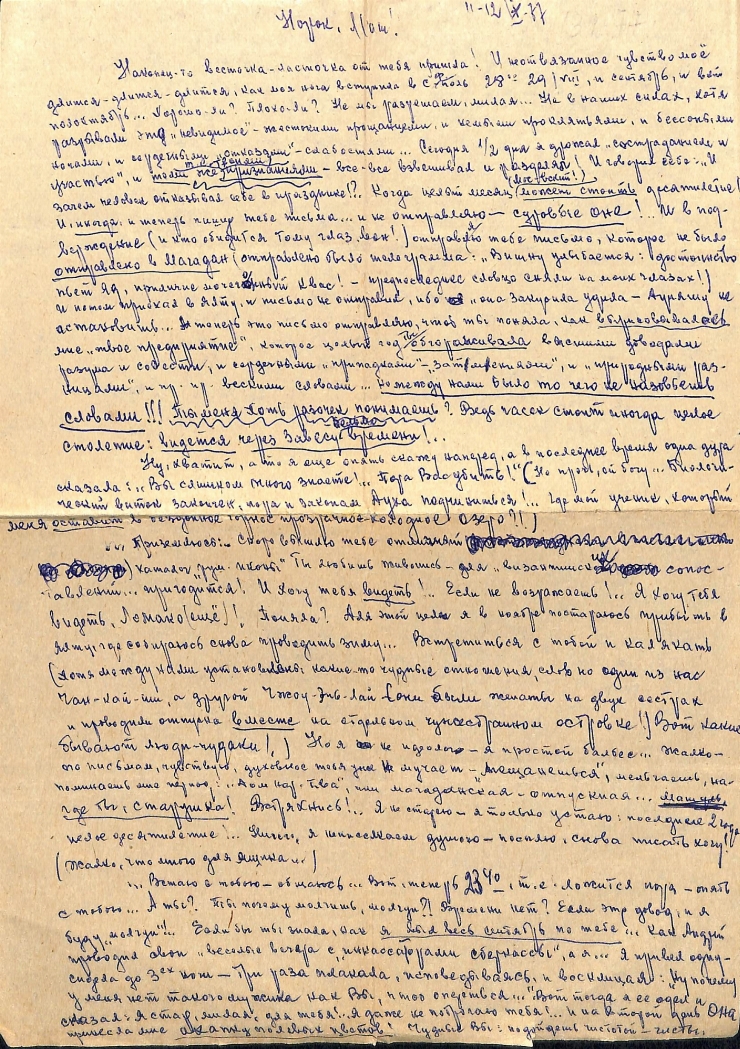 11-12/X-77
Норок, Мош!
Наконец-то весточка-ласточка от тебя пришла! И неотвязанное чувство моё
длится-длится-длится, как моя нога вступила в 28 29/VIII, и сентябрь, и вот
полоктябрь... Хорошо-ли? Плохо-ли? Не мы разрушаем, милая... Не в наших силах, хотя
разрывали это "невидимое" - жестокими прощаниями, и проклятьями, и бессонными
ночами, и сердечными - слабостями... Сегодня 1/2 дня я дрожал "состраданием и
участью", и признаниями - все-все взвешивал и разделял! И говорил себе: "И
зачем человек отказывал себе в празднике!?. Когда целый месяц может стоить десятилетие!
И иногда и теперь пишу тебе письма... и не отправляю - суровые оне!.. И в под-
верждение (и кто обидится тому глаз вон!) отправляю тебе письмо, которое не было
отправлено в Магадан (отправлено было телеграмма: "Вишну улыбается: достоинство
пьет яд, приличие квас! - предпоследнее словцо сняли на моих глазах!)
И потом приехал в Ялту, и письмо не отправил, ибо "она закусила удила - Аннушку не
остановить... А теперь это письмо отправляю, чтоб ты поняла, как вырисовывалось
мне "твое предприятие", которое целый год ты обгораживала высшими доводами
разума и совести, и сердечными "припадками"-затмениями", и "природными раз-
ницами", и пр. пр. вескими словами... но между нами было то чего не назовёшь
словами!!! Ты меня хоть разочек понимаешь? Ведь часок стоит иногда целое
столетие: видется через завесу времени!..
Ну, хватит, а то я еще опять скажу наперед, а в последнее время одна дура
сказала: "Вы слишком много знаете!.. Пора Вас убить!" (Но прош, ей богу... Биологи-
ческий виток закончен, пора и законам Духа подчиниться!.. Где мой ученик, который
меня оставит в освященное горное прозрачное-холодное озеро?!.)
... Приземлюсь... Скоро вышлю тебе
каталог "рум. иконы" Ты любишь живопись - для "византийских" сопос-
тавлений... пригодится! И хочу тебя видеть!.. Если не возражаешь!.. Я хочу тебя
видеть, Ломако (ещё)! Поняла? Для этой цели я в ноябре постараюсь прибыть в
Ялту, где собираюсь снова проводить зиму... Встретиться с тобой и калякать
(хотя между нами установлены какие-то чудные отношения, словно один из нас
Чан-кай-ши, а другой Чжоу-Энь-лай (они были женаты на двух сестрах
и проводили отпуска вместе на отдельном чужестранном островке!) Вот какие
бывают люди-чудаки!.) Но я не идеолог - я простой балбес... Жалко-
по письмам, чувствую, духовное тебя уже не мучает - "мещанешься", мельчаешь, на-
поминаешь мне период: или магаданская - отпускная...
где ты, старушка! Встряхнись!.. Я не старею - я только устаю: последние 2 года
целое десятилетие!.. Ничего, я непоседкаем думаю - посплю, снова писать хочу!
(жалко, что много для ящика...)
... Встаю с тобою - общаюсь... Вот, теперь 23 40, т.е. ложится пора - опять
с тобою... А ты? Ты почему молчишь, молчун?! Времени нет? Если это довод, и я
буду "молчун"!.. Если бы ты знала, как я выл весь октябрь по тебе... Как Андрей
проводил свои "веселые вечера с "инкассаторами сберкассы", а я... Я привел одну-
сидела до 3ех ночи - Три раза плакала, исповедываясь, и восклицая: "Ну почему
у меня нет такого мужика как Вы, чтоб опереться..." Вот тогда я её одел и
сказал: я стар, милая, для тебя!.. Я даже не потрогаю тебя!.. и на второй день она
принесла мне охапку полевых цветов! Чудные Вы: подойдешь чистотой - чисты,